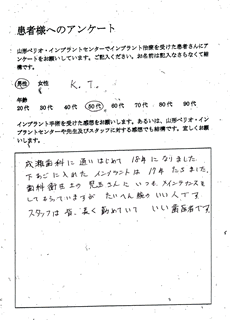 患者様へのアンケート
山形ペリオ・インプラントセンターでインプラント治療を受けた患者さんにア
ンケートをお願いしています。ご記入ください。お名前は記入なさらなくて結
構です。
男性 女性 K.T.
年齢
20代 30代 40代 50代 60代 70代 80代 90代
インプラント手術を受けた感想をお願いします。あるいは、山形ペリオ・イン
プラントセンターや先生及びスタッフに対する感想でも結構です。宜しくお願
いします。
成瀬歯科に通いはじめて 18年になりました。
下あごに入れた インプラントは 17年 たちました。
歯科衛生士の 児玉さんに いつも メインテナンスを
してもらっていますが たいへん 腕の いい人です
スタッフは 皆、長く 勤めていて いい歯医者です